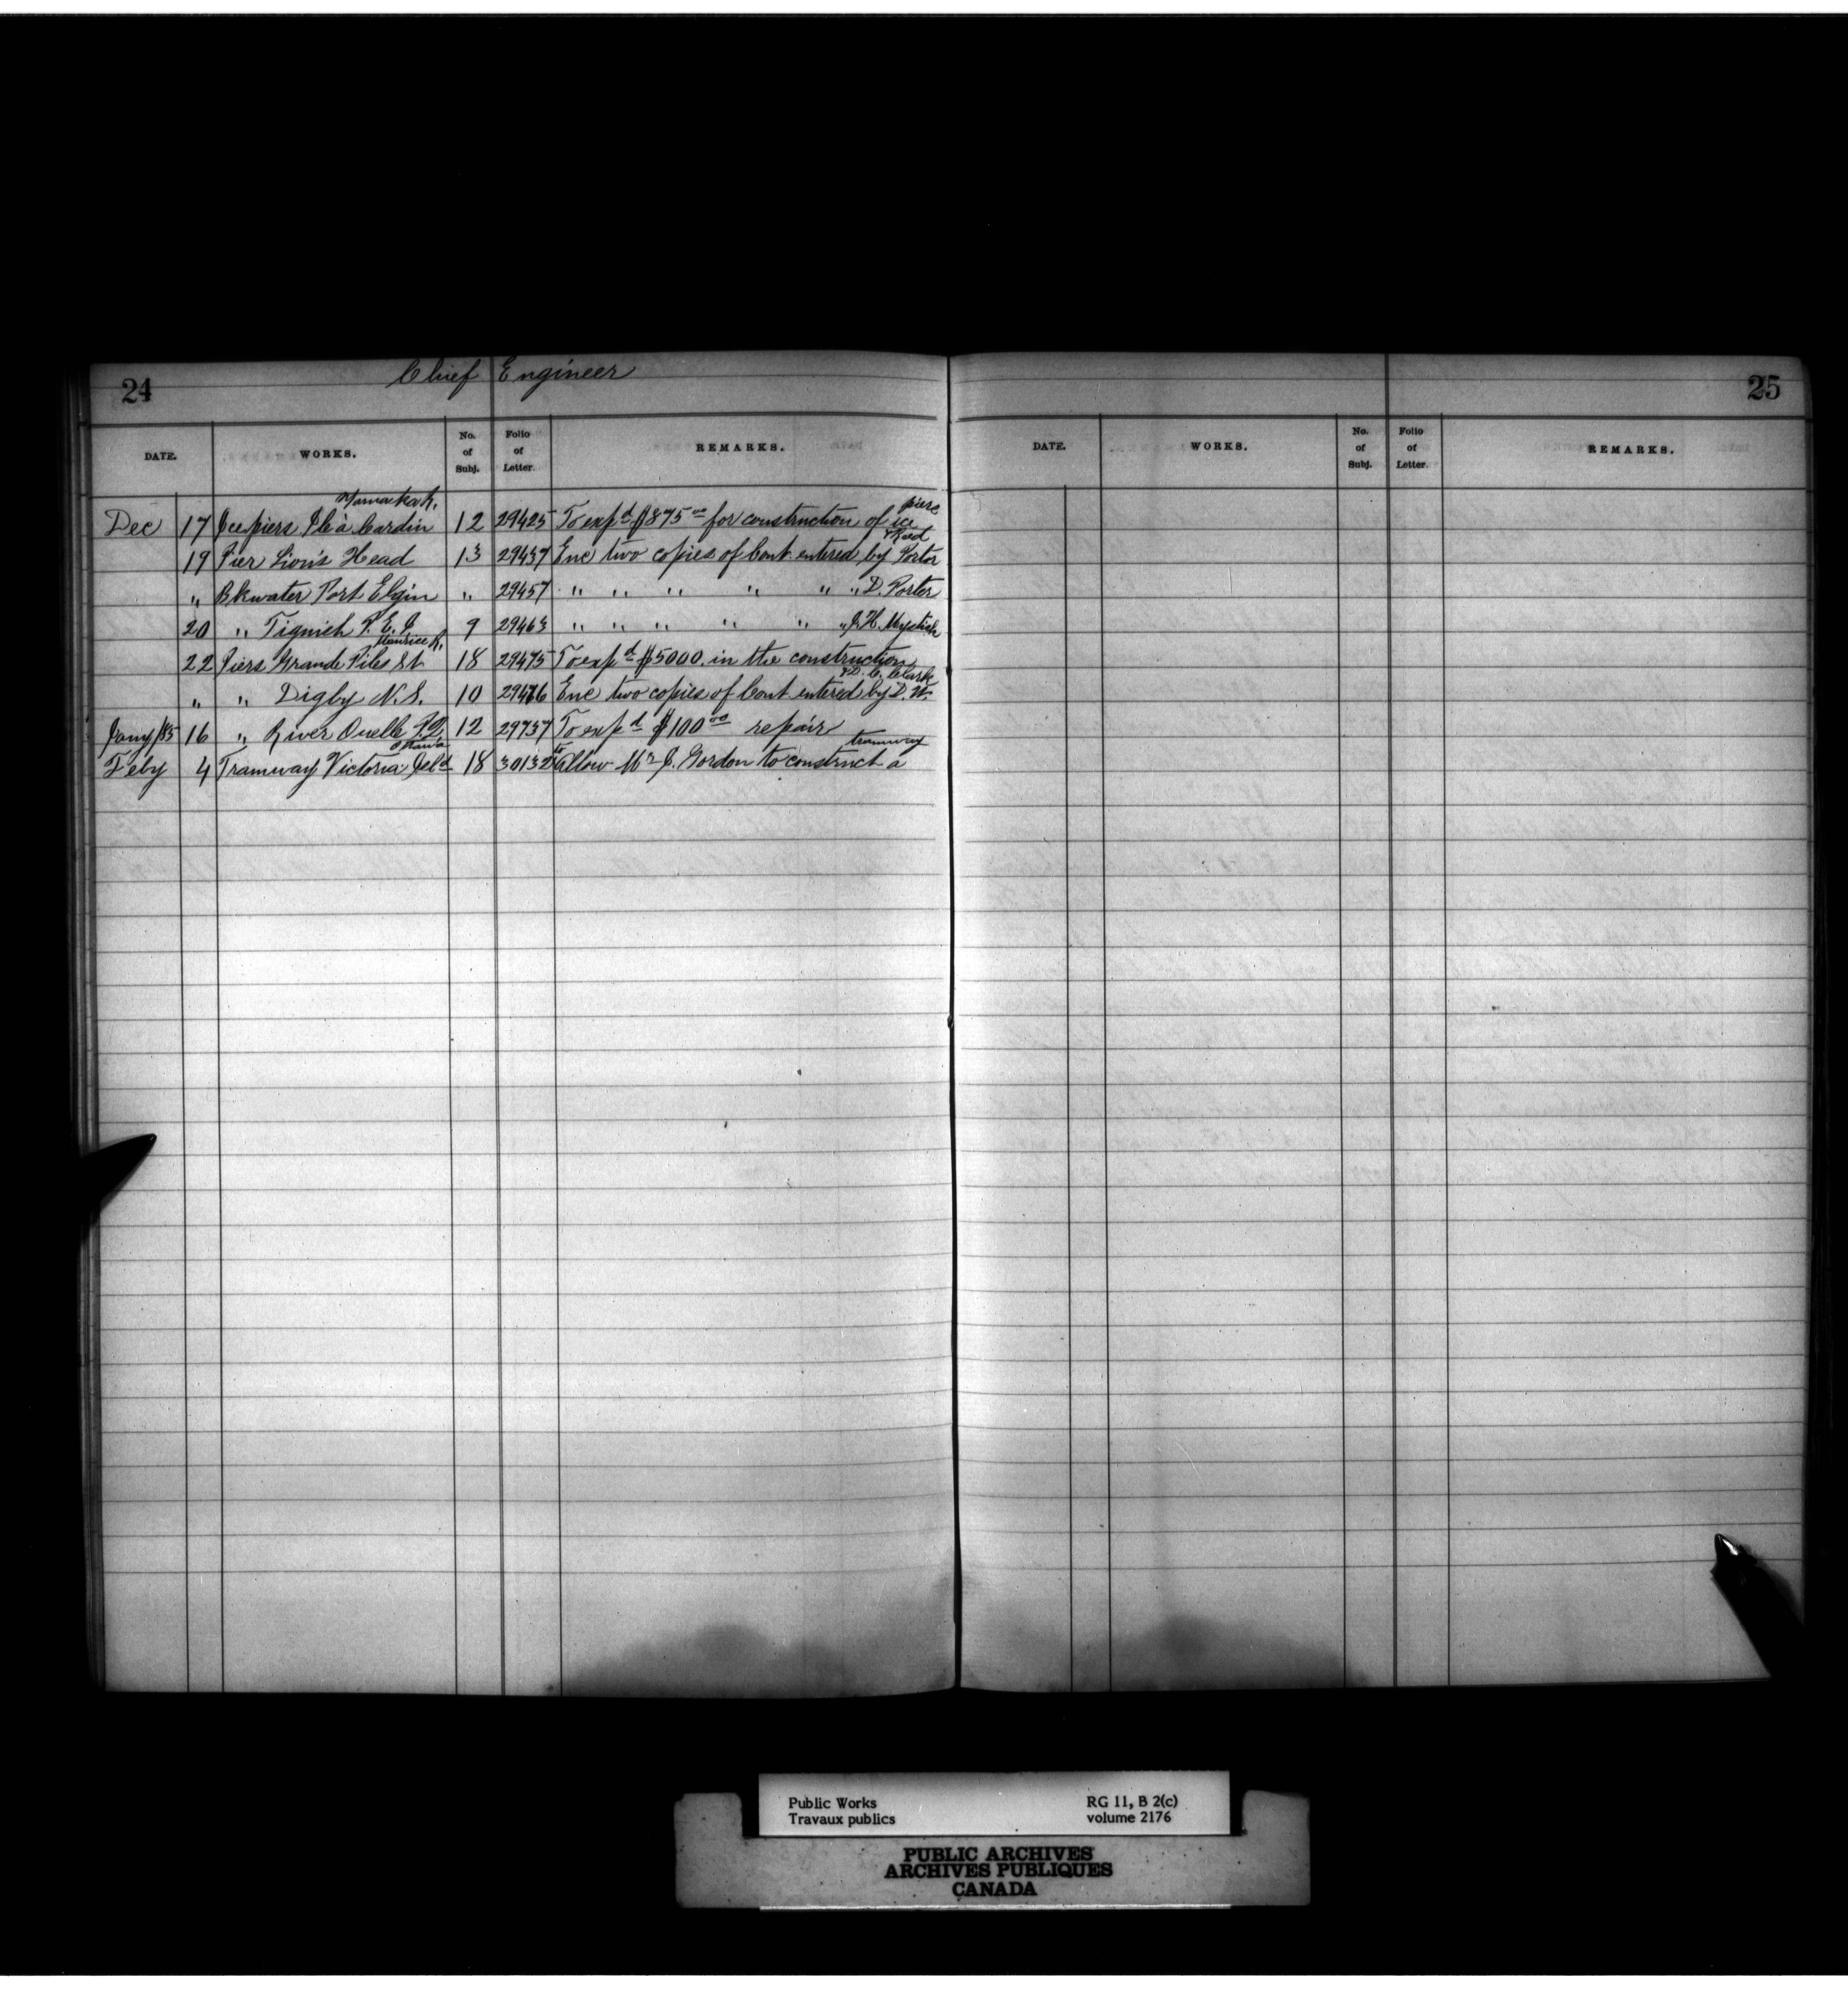 24
Chief Engineer
DATE. WORKS. No. of Subj. Folio of Letter. REMARKS.
Yamaska R. piers
Dec 17 Ice piers Ile à Cardin 12 29425 To exp^d $875^00 for construction of ice
& Reed
19 Pier Lion's Head 13 29437 Enc two copies of Cont entered by Porter
" Bkwater Port Elgin " 29457 " " " " " " D. Porter
20 " Tignish P. E. I 9 29463 " " " " " " J. H. Myrtich
Maurice R.
22 Piers Grande Piles St 18 29475 To exp^d $5000. in the construction
& D. C. Clark
" " Digby N. S. 10 29476 Enc two copies of Cont entered by D. W.
Jany/85 16 " River Ouelle P.Q. 12 29737 To exp^d $100^00 repair
Ottawa tramway
Feby 4 Tramway Victoria Isl^d 18 30132 To allow M^r J. Gordon to construct a
25
DATE. WORKS. No. of Subj. Folio of Letter. REMARKS.
Public Works RG 11, B 2(c)
Travaux publics volume 2176
PUBLIC ARCHIVES
ARCHIVES PUBLIQUES
CANADA